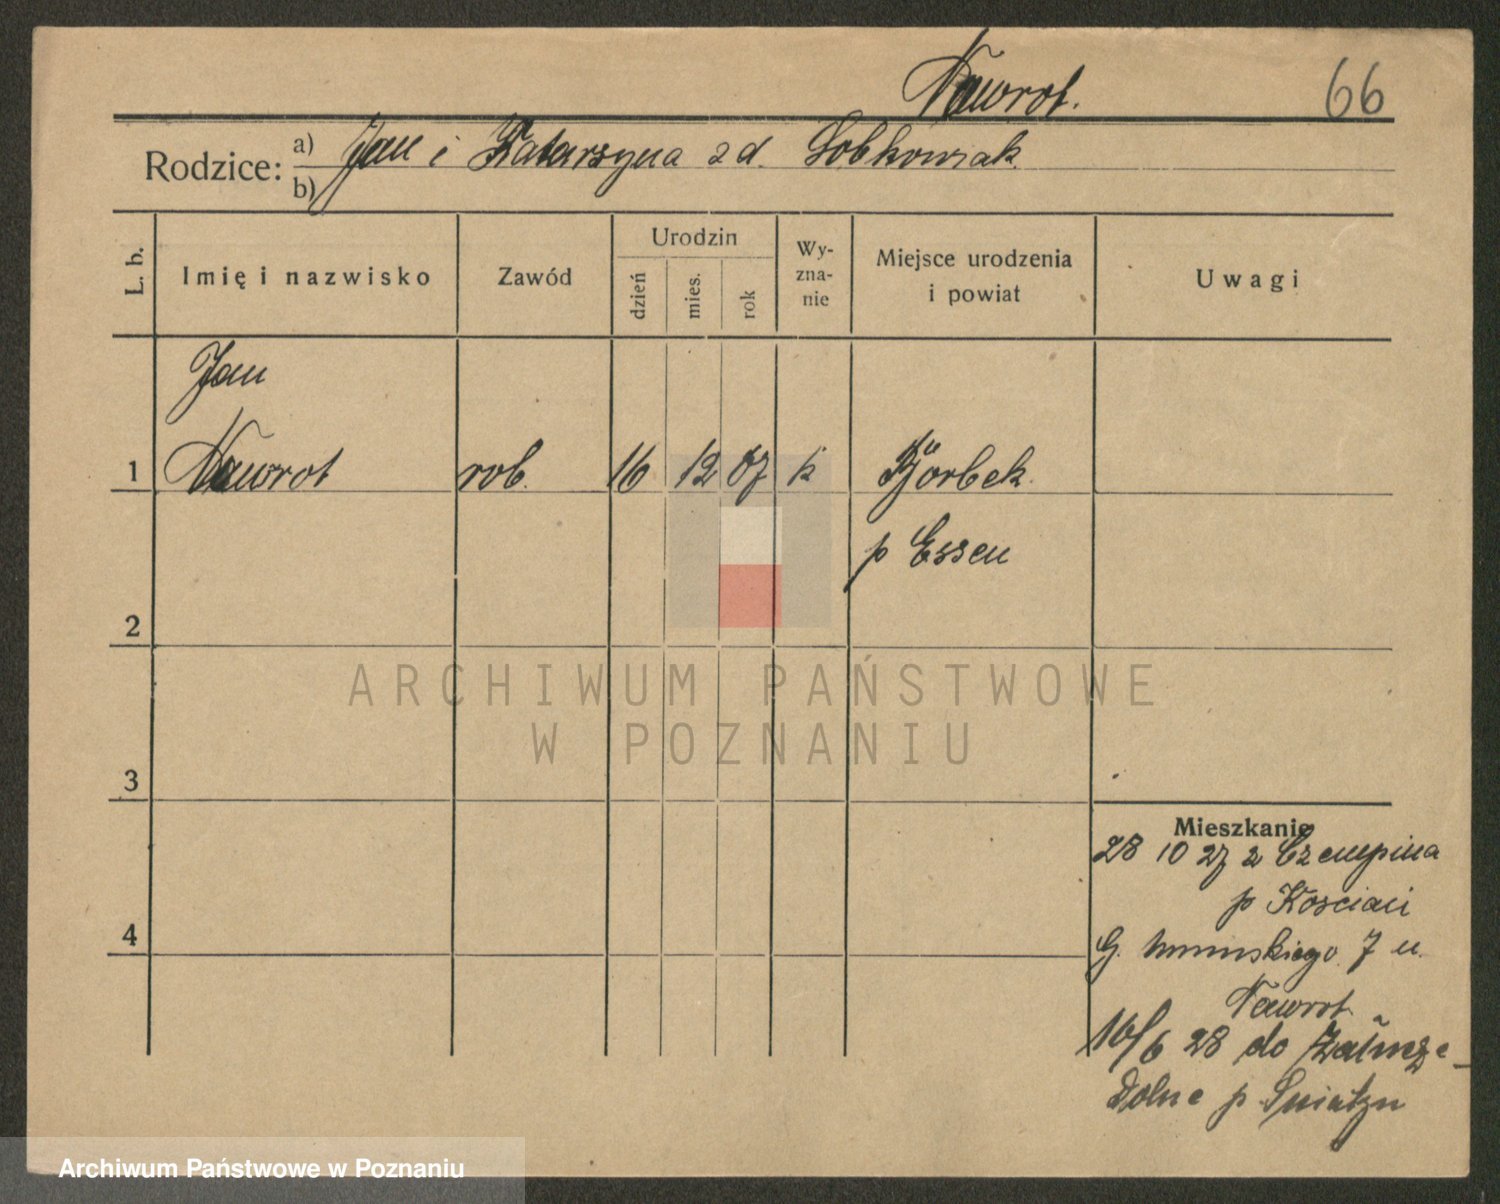 Nawrot.
66
Rodzice:
a) Jan i Katarzyna z d. Sobkowiak
b)
L. b.
Imię i nazwisko
Zawód
Urodzin
dzień
mies.
rok
Wy-
zna-
nie
Miejsce urodzenia
i powiat
Uwagi
Jan
1 Nawrot rob. 16 12 07 k
p Essen
2
3
4
ARCHIWUM PAŃSTWOWE
W POZNANIU
Mieszkanie
28 10 27 z Czempinia
p Kościan
7 u.
Nawrot
16/6 28 do
Dolne p
Archiwum Państwowe w Poznaniu